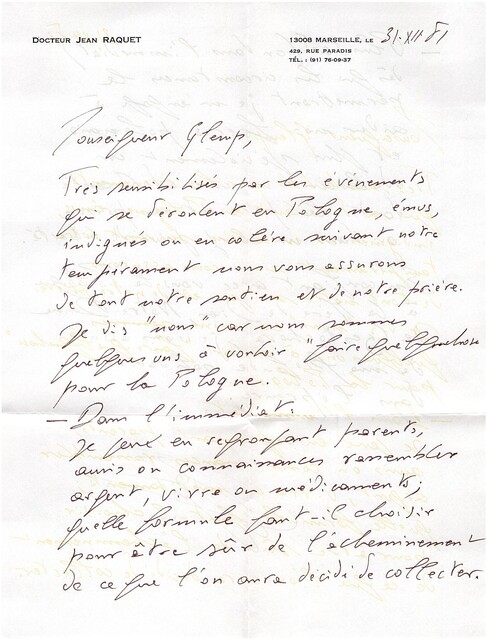 DOCTEUR JEAN RAQUET
13008 MARSEILLE, LE 31-XII 81
429, RUE PARADIS
TÉL. : (91) 76-09-37
Monseigneur Glemp,
Très sensibilisés par les événements
qui se déroulent en Pologne, émus,
indignés ou en colère suivant notre
tempérament nous vous assurons
de tout notre soutien et de notre prière.
Je dis "nous" car nous sommes
quelques uns à vouloir "faire quelquechose
pour la Pologne.
— Dans l'immédiat:
Je peux en regroupant parents,
amis ou connaissances rassembler
argent, vivre ou médicaments;
quelle formule faut-il choisir
pour être sûr de l'acheminement
de ce que l'on aura décidé de collecter.